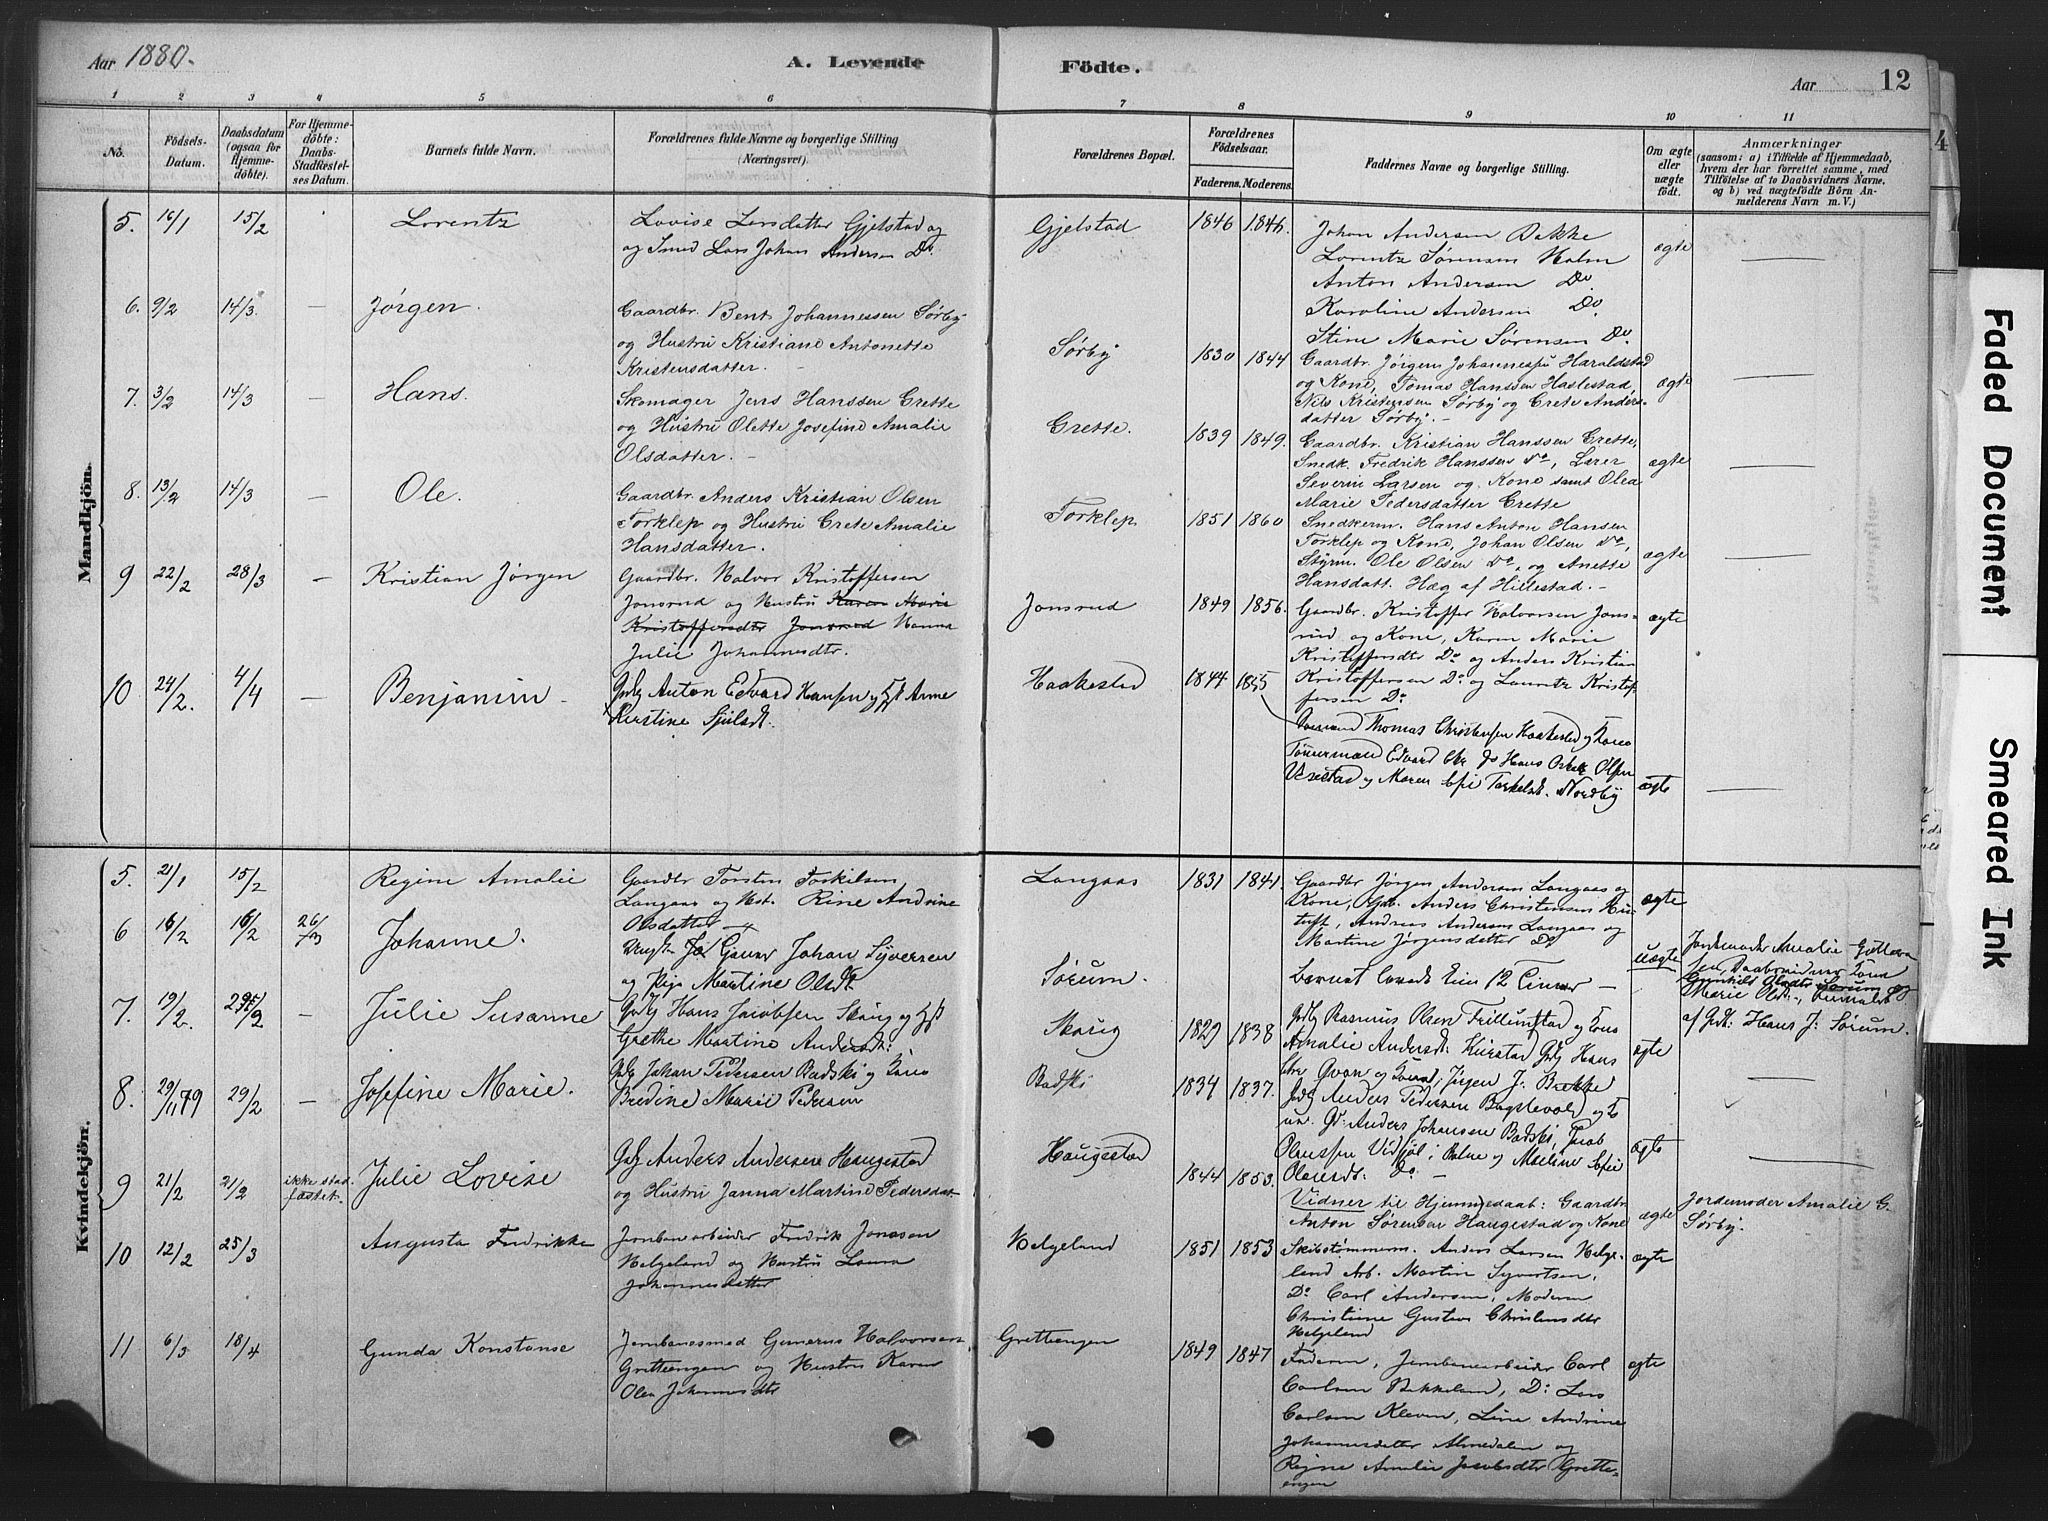 Aar 1880.
A. Levende Födte.
Aar
12
1 2 3 4 5 6 7 8 9 10 11
No.
Födsels-Datum.
Daabsdatum (ogsaa for Hjemme-döbte).
For Hjemme-döbte: Daabs-Stadfestel-ses Datum.
Barnets fulde Navn.
Forældrenes fulde Navne og borgerlige Stilling (Næringsvei).
Forældrenes Bopæl.
Forældrenes Födselsaar.
Faderens. Moderens.
Faddernes Navne og borgerlige Stilling.
Om ægte eller uægte födt.
Anmærkninger
(saasom: a) i Tilfælde af Hjemmedaab, hvem der har forrettet samme, med Tilföielse af to Daabsvidners Navne, og b) ved uægtefödte Börn An-melderens Navn m. V.)
Mandkjön.
5. 16/1 15/2 Lorentz
Lovise Larsdatter Gjelstad og
og Smed Lars Johan Andersen Do.
Gjelstad 1846 1846.
Johan Andersen Bakke
Lorentz Sørensen Holm
Anton Andersen Do.
Karoline Andersen Do.
Stine Marie Sørensen Do.
ægte
6. 9/2 14/3 – Jørgen.
Gaardbr. Bent Johannessen Sørby
og Hustru Kristiane Antonette
Kristensdatter.
Sørby 1830 1844
Gaardbr. Jörgen Johannessen Haraldstad
og Kone, Tomas Hanssen Haslestad,
Nils Kristensen Sørby og Grete Anders-
datter Sørby. –
ægte
7. 3/2 14/3 – Hans.
Skomager Jens Hanssen Grette
og Hustru Olette Josefine Amalie
Olsdatter. –
Grette. 1839 1849.
Gaardbr. Kristian Hanssen Grette,
Snedk. Fredrik Hanssen do, Lærer
Severin Larsen og Kone samt Olea
Marie Pedersdatter Grette
ægte
8. 13/2 14/3 – Ole.
Gaardbr. Anders Kristian Olsen
Torklep og Hustru Grete Amalie
Hansdatter.
Torklep 1851 1860
Snedkerm. Hans Anton Hansen
Torklep og Kone, Johan Olsen do,
Styrm. Ole Olsen Do, og Anette
Hansdatt. Hæg af Hillestad. –
ægte
9 22/2 28/3 – Kristian Jørgen
Gaardbr. Halvor Kristoffersen
Jonsrud og Hustru Karen Marie
Kristoffersdtr Jonsrud Hanna
Julie Johannesdtr.
Jonsrud 1849 1856.
Gaardbr. Kristoffer Halvorsen Jons-
rud og Kone, Karen Marie
Kristoffersdtr Do og Anders Kristian
Kristoffersen Do og Lauritz Kristof-
fersen Do
ægte
10 24/2. 4/4 – Benjamin –
Gbr Anton Edvard Hansen og Hst Anne
Kirstine Sjulsdt.
Haakestad 1844 1855
Thomas Christensen Haakestad og Kone
Tömmermand Edvard do Hans Olsen
og Maren Sofie Torkelsdt. Nordby
ægte
Kvindekjön.
5. 21/1 15/2 Regine Amalie
Gaardbr Torsten Torkilsen
Langaas og Hst. Rine Andrine
Olsdatter –
Langaas 1831 1841.
Gaardbr Jörgen Andersen Langaas og
Kone, Anders Christensen
Andreas Andersen Langaas og
Martine Jørgensdatter Do
ægte
6 16/2 16/2 26/73 Johanne.
Ungk. Johan Syversen
og Pige Martine Olsdt.
Sørum.
Barnet levede kun 12 Timer –
uægte
Jordemoder Amalie
Daabsvidner Kone
Gunhild Olsdtr Sørum og
Marie Olsdt., anmeldt
af Gdr: Hans J: Sørum.
7. 19/2. 29/2 – Julie Susanne
Gdbr Hans Jacobsen Skoug og Hst
Grethe Martine Andersdt:
Skoug 1829 1838
Gdbr Rasmus Olsen Trillumstad og Kone
Amalie Andersdt: Gdbr Hans
Jörgen J. Brekke
ægte
8. 29/11 79 29/2 – Josefine Marie.
Gdbr Johan Pedersen Badski og Kone
Bredine Marie Pedersen
Badski 1834 1837.
Gdbr Anders Pedersen og Ko
ne. Gdr Anders Johansen Badski, Jacob
Olaussen og Meline Sofie
Olausdt: Do –
ægte
9 21/2 21/2 ikke stad-fæstet. Julie Lovise
Gdbr Anders Andersen Haugestad
og Hustru Janna Martine Pedersdat-
Haugestad 1844 1853.
Vidner til Hjemmedaab: Gaardbr.
Anton Sørensen Haugestad og Kone
ægte
Jordemoder Amalie G.
Sørby.
10 12/2 25/3 Augusta Fredrikke
Jernbanearbeider Fredrik Jonassen
Helgeland og Hustru Laura
Johannesdatter
Helgeland 1851 1853
Skibstømmerm. Anders Larsen Helge-
land Arb. Martin Syvertsen,
Do Carl Andersen, Moderen
Christine Gustava Christensdtr
Helgeland
ægte
11 6/3 18/4 Gunda Konstanse
Jernbanesmed Gunerus Halvorsen
Gretteengen og Hustru Karen
Olea Johannesdtr
Gretteengen 1849 1847
Faderen, Jernbanearbeider Carl
Carlsen Bekkeland, Do: Lars
Carlsen Kleven, Line Andrine
Johannesdatter Almedalen og
Regine Amalie Jacobsdtr Grette-
engen
ægte
Faded Document
Smeared Ink
4